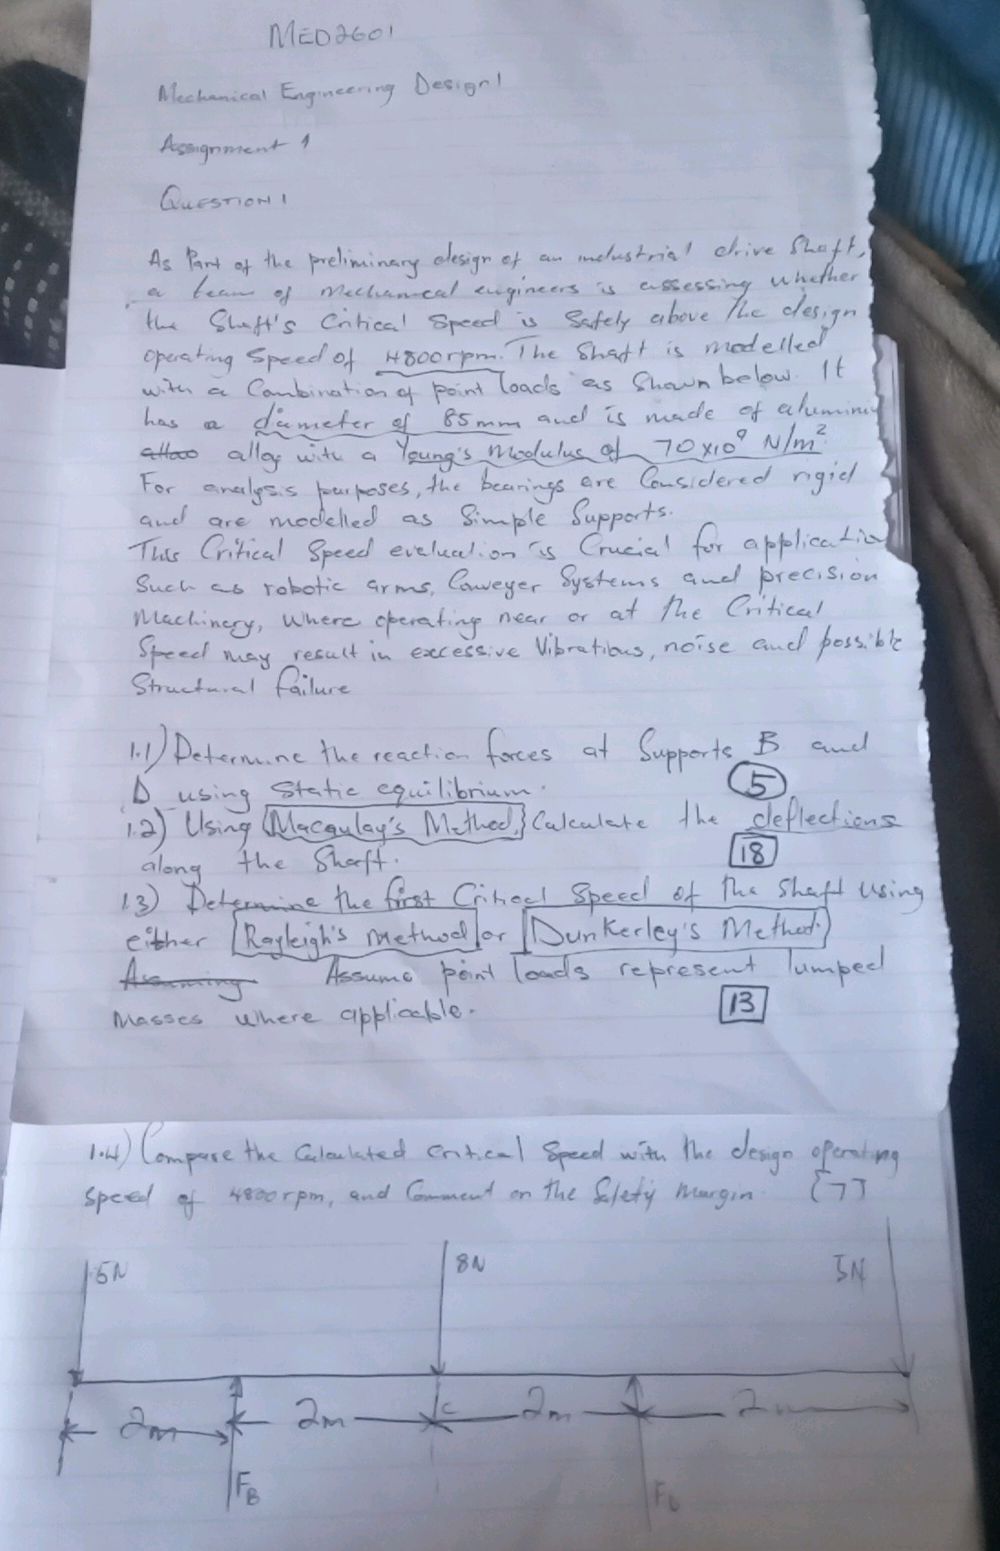 MED2601
Mechanical Engineering Design 1
Assignment 1
QUESTION 1
As Part of the preliminary design of an industrial drive Shaft,
a team of Mechanical engineers is assessing whether
the Shaft's Critical Speed is Safely above the design
Operating Speed of 4800rpm. The Shaft is modelled
with a Combination of point loads as Shown below. It
has a diameter of 85mm and is made of
alloy with a Young's Modulus of 70x10⁹ N/m²
For analysis purposes, the bearings are Considered rigid
and are modelled as Simple Supports.
This Critical Speed evaluation is Crucial for
Such as robotic arms, Conveyer Systems and precision
Machinery, Where operating near or at the Critical
Speed may result in excessive Vibrations, noise and possible
Structural failure
1.1) Determine the reaction forces at Supports B and
D using Static equilibrium. 5
1.2) Using Macaulay's Method, Calculate the deflections
along the Shaft. 18
1.3) Determine the first Critical Speed of the Shaft using
either Rayleigh's method or Dunkerley's Method.
Assuming Assume point loads represent lumped
Masses where applicable. 13
1.4) Compare the Calculated Critical Speed with the design operating
Speed of 4800rpm, and Comment on the Safety Margin. [7]
5N 8N 5N
2m 2m C 2m 2m
FB